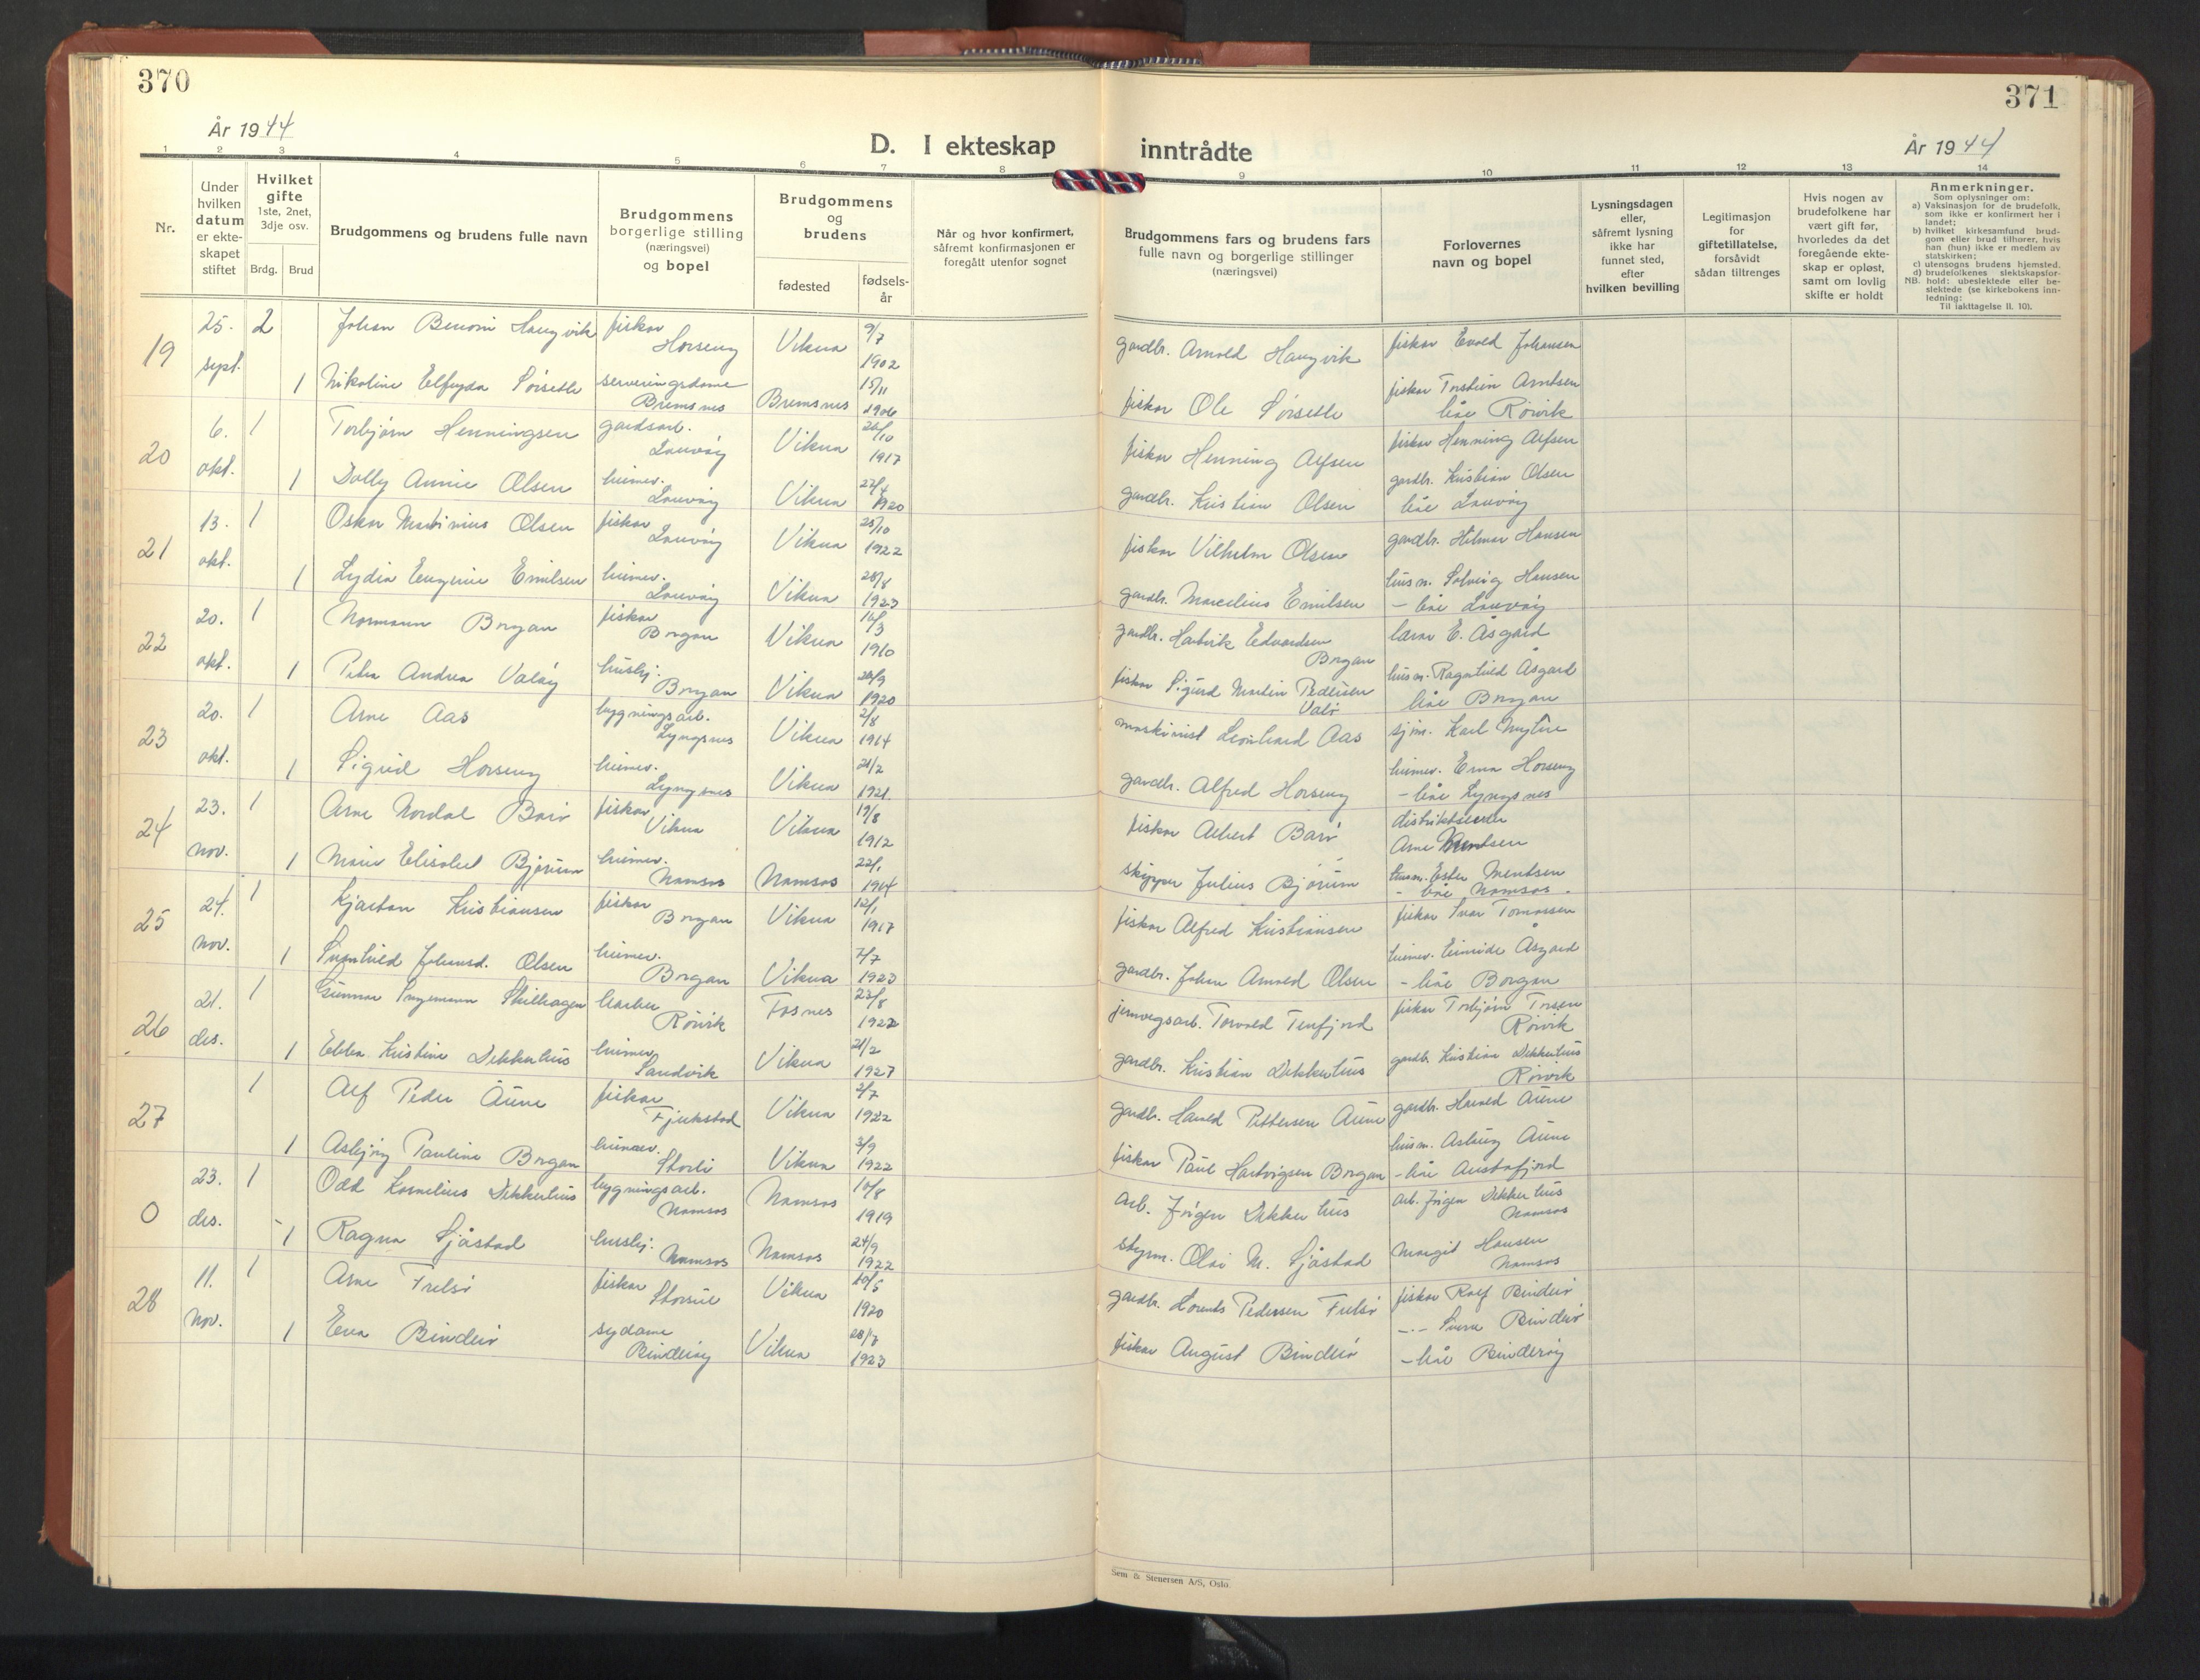 370
371
År 1944
D. I ekteskap inntrådte
År 1944
1 2 3 4 5 6 7 8 9 10 11 12 13 14
Nr.
Under hvilken datum er ekteskapet stiftet
Hvilket gifte 1ste, 2net, 3dje osv.
Brdg. Brud
Brudgommens og brudens fulle navn
Brudgommens borgerlige stilling (næringsvei) og bopel
Brudgommens og brudens
fødested
fødselsår
Når og hvor konfirmert, såfremt konfirmasjonen er foregått utenfor sognet
Brudgommens fars og brudens fars fulle navn og borgerlige stillinger (næringsvei)
Forlovernes navn og bopel
Lysningsdagen eller, såfremt lysning ikke har funnet sted, efter hvilken bevilling
Legitimasjon for giftetillatelse, forsåvidt sådan tiltrenges
Hvis nogen av brudefolkene har vært gift før, hvorledes da det foregående ekteskap er opløst, samt om lovlig skifte er holdt
Anmerkninger.
Som oplysninger om:
a) Vaksinasjon for de brudefolk, som ikke er konfirmert her i landet;
b) hvilket kirkesamfund brudgom eller brud tilhører, hvis han (hun) ikke er medlem av statskirken;
c) utensogns brudens hjemsted.
d) brudefolkenes slektskapsforhold: ubeslektede eller beslektede (se kirkebokens innledning:
NB. Til iakttagelse II. 10).
19 25. sept. 2 Johan Benoni Haugvik fiskar Horseng Vikna 9/7 1902 gardbr. Arnold Haugvik fiskar Evald Johansen
1 Nikoline Elfryda Sørsetle serveringsdame Bremsnes Bremsnes 15/11 1906 fiskar Ole Sørsetle fiskar Torstein Arntsen båe Rørvik
20 6. okt. 1 Torbjørn Henningsen gardsarb. Lauvøy Vikna 26/10 1917 fiskar Henning Alfsen fiskar Henning Alfsen
1 Dolly Annie Olsen heimev. Lauvøy Vikna 1920 gardbr. Kristian Olsen gardbr. Kristian Olsen båe Lauvøy
21 13. okt. 1 Oskar Martinius Olsen fiskar Lauvøy Vikna 25/10 1922 fiskar Vilhelm Olsen gardbr. Hilmar Hansen
1 Lydia Eugenie Emilsen heimev. Lauvøy Vikna 28/8 1923 gardbr. Marcelius Emilsen husm. Solveig Hansen - båe Lauvøy
22 20. okt. 1 Normann Borgan fiskar Borgan Vikna 16/3 1910 gardbr. Hartvik Edvardsen Borgan lærar E. Åsgard
1 Petra Andrea Valøy hushj. Borgan Vikna 26/9 1920 fiskar Sigurd Martin Pedersen Valø husm. Ragnhild Åsgard båe Borgan
23 20. okt. 1 Arne Aas bygningsarb. Lyngsnes Vikna 2/8 1914 maskinist Leonhard Aas sjm. Karl Myhre
1 Sigrid Horseng heimev. Lyngsnes Vikna 21/2 1921 gardbr. Alfred Horseng heimev. Erna Horseng - båe Lyngsnes
24 23. nov. 1 Arne Nordal Barø fiskar Vikna Vikna 19/8 1912 fiskar Albert Barø Arne Mentsen
1 Marie Elisabet Bjørum heimev. Namsos Namsos 22/1 1914 skipper Julius Bjørum husm. Ester Mentsen - båe Namsos.
25 24. nov. 1 Kjartan Kristiansen fiskar Borgan Vikna 12/1 1917 fiskar Alfred Kristiansen fiskar Ivar Tomassen
1 Svanhild Johansd. Olsen heimev. Borgan Vikna 7/7 1923 gardbr. Johan Arnold Olsen heimev. Åsgard - båe Borgan
26 21. des. 1 Gunnar Ingemann Skilhagen barber Rørvik Fosnes 23/8 1922 jernvegsarb. Torvald Tenfjord fiskar Torbjørn Rørvik
1 Ebba Kristine Dekkerhus heimev. Sandvik Vikna 21/2 1927 gardbr. Kristian Dekkerhus gardbr. Kristian Dekkerhus Rørvik
27 1 Alf Peder Aune fiskar Fjukstad Vikna 2/7 1922 gardbr. Harald Pettersen Aune gardbr. Harald Aune
1 Asbjørg Pauline Borgan heimev. Storli Vikna 3/9 1922 fiskar Paul Hartvigsen Borgan husm. Asbørg Aune - båe Austafjord
0 23. des. 1 Odd Kornelius Dekkerhus bygningsarb. Namsos Namsos 10/8 1919 arb. Jørgen Dekkerhus arb. Jørgen Dekkerhus Namsos
1 Ragna Sjåstad hushj. Namsos Namsos 24/9 1922 styrm. Olai M. Sjåstad Margit Hansen Namsos
28 11. nov. 1 Arne Frelsø fiskar Vikna 20/5 1920 gardbr. Lorents Pedersen Frelsø fiskar Rolf Bindalø
1 Eva Bindalø sydame Vikna 1923 fiskar August Bindalø
Sem & Stenersen A/S, Oslo.